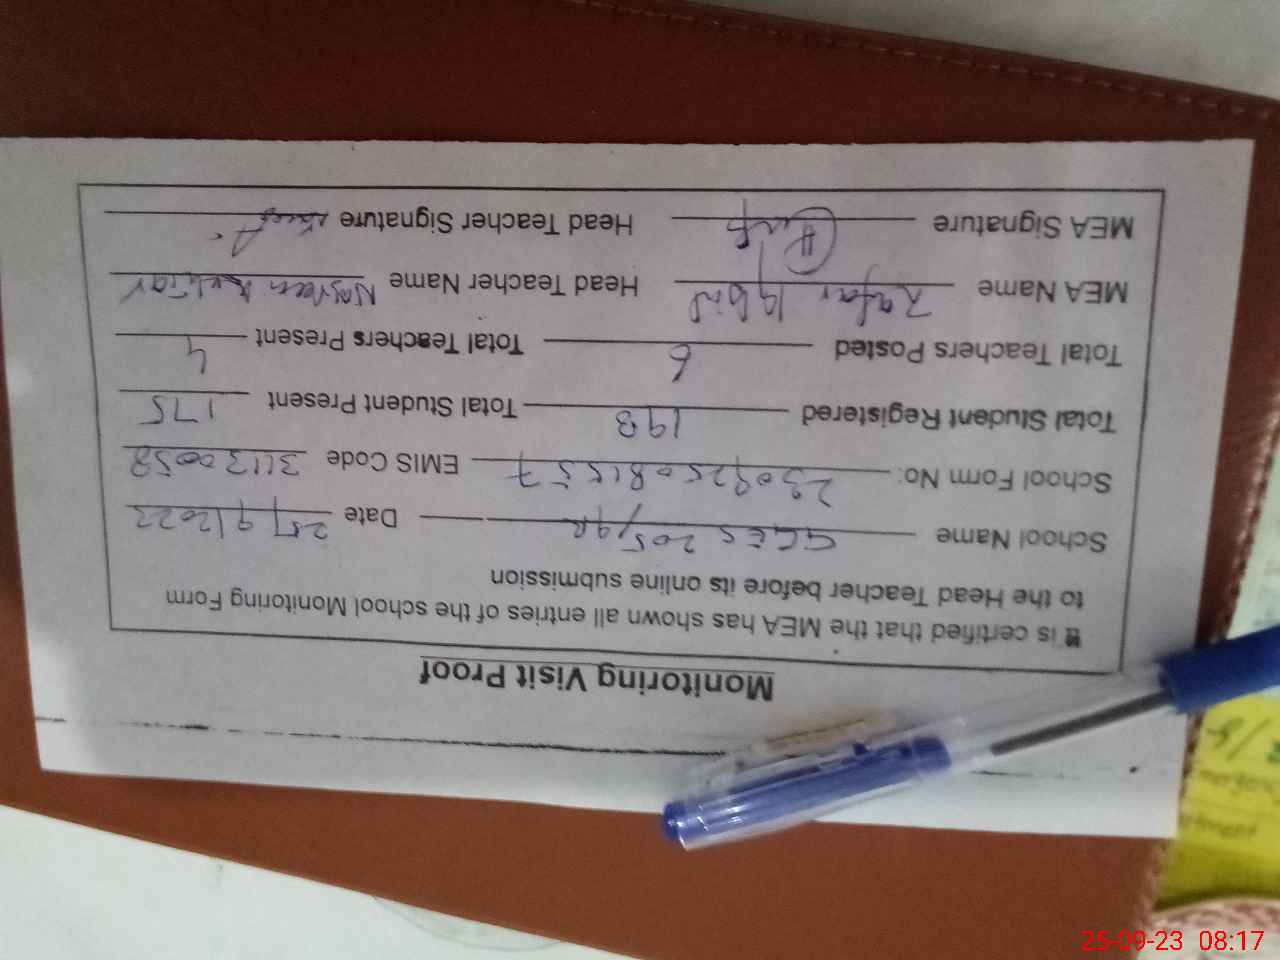 Monitoring Visit Proof
It is certified that the MEA has shown all entries of the school Monitoring Form
to the Head Teacher before its online submission
School Name GGES 205/9R Date 25/9/2023
School Form No: 230925081557 EMIS Code 31130058
Total Student Registered 193 Total Student Present 175
Total Teachers Posted 6 Total Teachers Present 4
MEA Name Zafar Iqbal Head Teacher Name Nasreen Akhtar
MEA Signature Head Teacher Signature
25-09-23 08:17